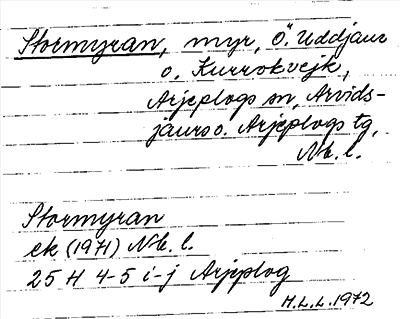 Stormyran, myr, Ö. Uddjaur
o. Kurrokvejk,
Arjeplogs sn, Arvids-
jaurs o. Arjeplogs tg,
Nb. l.
Stormyran
ek (1971) Nb. l.
25 H 4-5 i-j Arjeplog
H.L.L. 1972